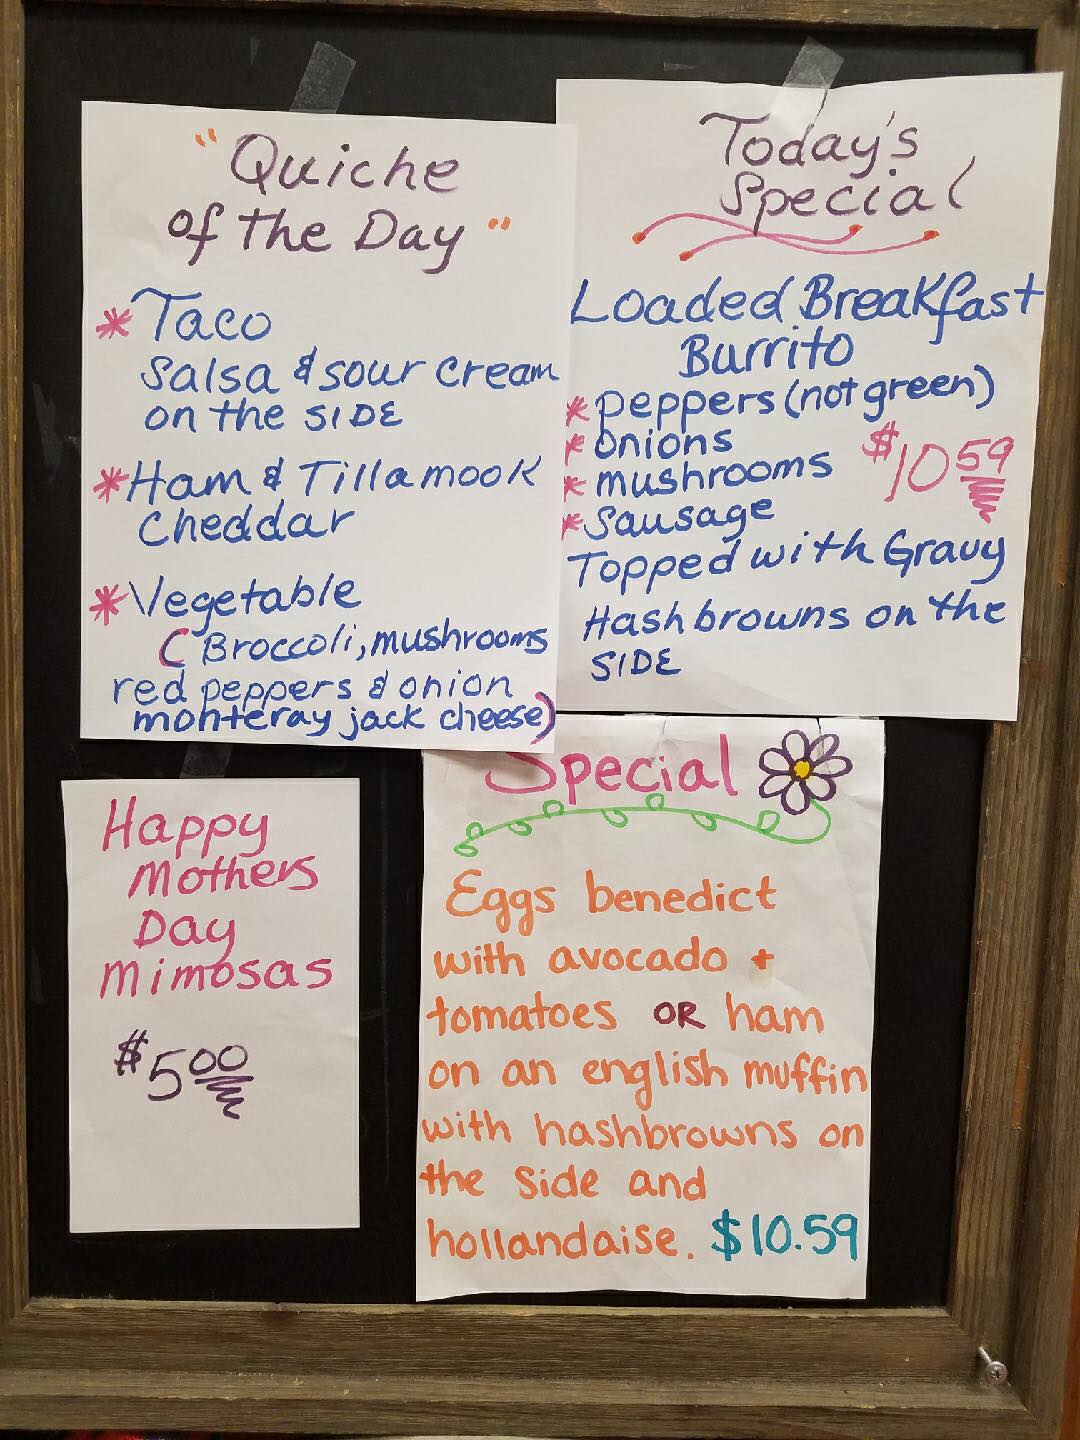 "Quiche
of the Day"
* Taco
Salsa & sour cream
on the SIDE
* Ham & Tillamook
Cheddar
* Vegetable
(Broccoli, mushrooms
red peppers & onion
monteray jack cheese)
Today's
Special
Loaded Breakfast
Burrito
* peppers (not green)
* onions
* mushrooms
* Sausage
$10.59
Topped with Gravy
Hashbrowns on the
SIDE
Happy
Mothers
Day
Mimosas
$5.00
Special
Eggs benedict
with avocado +
tomatoes OR ham
on an english muffin
with hashbrowns on
the side and
hollandaise. $10.59